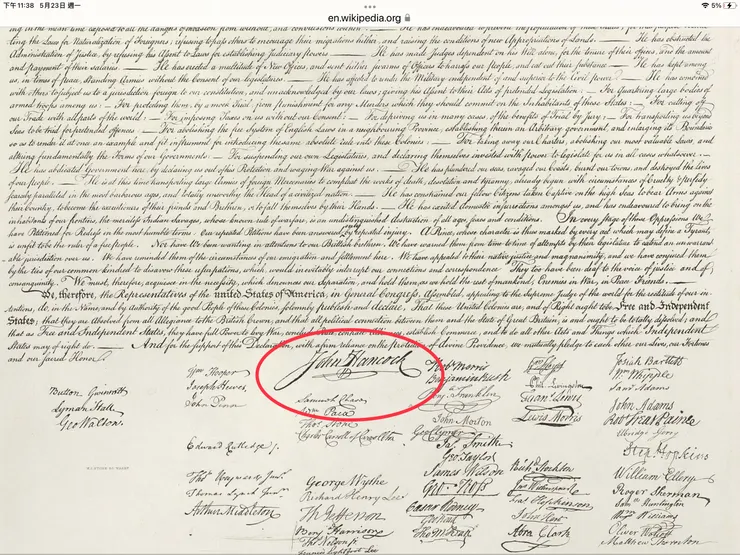 下午11:38 5月23日週二
en.wikipedia.org
5%
ting the Laws for Naturalization of Foreigners; refusing to pass others to encourage their migrations hither, and raising the conditions of new Appropriations of Lands. — He has obstructed the
Administration of Justice, by refusing his Assent to Laws for establishing Judiciary powers. — He has made Judges dependent on his Will alone, for the tenure of their offices, and the amount
and payment of their salaries. — He has erected a multitude of New Offices, and sent hither swarms of Officers to harrass our people, and eat out their substance. — He has kept among
us, in times of peace, Standing Armies without the Consent of our legislatures. — He has affected to render the Military independent of and superior to the Civil power. — He has combined
with others to subject us to a jurisdiction foreign to our constitution, and unacknowledged by our laws; giving his Assent to their Acts of pretended Legislation: — For Quartering large bodies of
armed troops among us: — For protecting them, by a mock Trial, from punishment for any Murders which they should commit on the Inhabitants of these States: — For cutting off
our Trade with all parts of the world: — For imposing Taxes on us without our Consent: — For depriving us in many cases, of the benefits of Trial by Jury: — For transporting us beyond
Seas to be tried for pretended offences: — For abolishing the free System of English Laws in a neighbouring Province, establishing therein an Arbitrary government, and enlarging its Boundaries
so as to render it at once an example and fit instrument for introducing the same absolute rule into these Colonies: — For taking away our Charters, abolishing our most valuable Laws, and
altering fundamentally the Forms of our Governments: — For suspending our own Legislatures, and declaring themselves invested with power to legislate for us in all cases whatsoever. —
He has abdicated Government here, by declaring us out of his Protection and waging War against us. — He has plundered our seas, ravaged our Coasts, burnt our towns, and destroyed the lives
of our people. — He is at this time transporting large Armies of foreign Mercenaries to compleat the works of death, desolation and tyranny, already begun with circumstances of Cruelty & perfidy
scarcely paralleled in the most barbarous ages, and totally unworthy the Head of a civilized nation. — He has constrained our fellow Citizens taken Captive on the high Seas to bear Arms against
their Country, to become the executioners of their friends and Brethren, or to fall themselves by their Hands. — He has excited domestic insurrections amongst us, and has endeavoured to bring on the
inhabitants of our frontiers, the merciless Indian Savages, whose known rule of warfare, is an undistinguished destruction of all ages, sexes and conditions. In every stage of these Oppressions We
have Petitioned for Redress in the most humble terms: Our repeated Petitions have been answered only by repeated injury. A Prince, whose character is thus marked by every act which may define a Tyrant,
is unfit to be the ruler of a free people. Nor have We been wanting in attentions to our Brittish brethren. We have warned them from time to time of attempts by their legislature to extend an unwarrant=
able jurisdiction over us. We have reminded them of the circumstances of our emigration and settlement here. We have appealed to their native justice and magnanimity, and we have conjured them
by the ties of our common kindred to disavow these usurpations, which would inevitably interrupt our connections and correspondence. They too have been deaf to the voice of justice and of
consanguinity. We must, therefore, acquiesce in the necessity, which denounces our Separation, and hold them, as we hold the rest of mankind, Enemies in War, in Peace Friends. —
We, therefore, the Representatives of the united States of America, in General Congress, Assembled, appealing to the Supreme Judge of the world for the rectitude of our in-
tentions, do, in the Name, and by Authority of the good People of these Colonies, solemnly publish and declare, That these United Colonies are, and of Right ought to be Free and Independent
States; that they are Absolved from all Allegiance to the British Crown, and that all political connection between them and the State of Great Britain, is and ought to be totally dissolved; and
that as Free and Independent States, they have full Power to levy War, conclude Peace, contract Alliances, establish Commerce, and to do all other Acts and Things which Independent
States may of right do. — And for the support of this Declaration, with a firm reliance on the protection of divine Providence, we mutually pledge to each other our Lives, our Fortunes
and our sacred Honor.
John Hancock
Button Gwinnett
Lyman Hall
Geo Walton.
Wm Hooper
Joseph Hewes,
John Penn
Edward Rutledge.
Thos Heyward Junr.
Thomas Lynch Junr.
Arthur Middleton
Samuel Chase
Wm Paca
Thos Stone
Charles Carroll of Carrollton
George Wythe
Richard Henry Lee
Th Jefferson
Benj Harrison
Thos Nelson jr.
Francis Lightfoot Lee
Robt Morris
Benjamin Rush
Benj. Franklin
John Morton
Geo Clymer
Jas. Smith
Geo. Taylor
James Wilson
Geo. Ross
Caesar Rodney
Geo Read
Tho M:Kean
Wm Floyd
Phil. Livingston
Frans. Lewis
Lewis Morris
Richd. Stockton
Jno Witherspoon
Fras. Hopkinson
John Hart
Abra Clark
Josiah Bartlett
Wm Whipple
Saml Adams
John Adams
Robt Treat Paine
Elbridge Gerry
Step. Hopkins
William Ellery
Roger Sherman
Saml Huntington
Wm Williams
Oliver Wolcott
Matthew Thornton